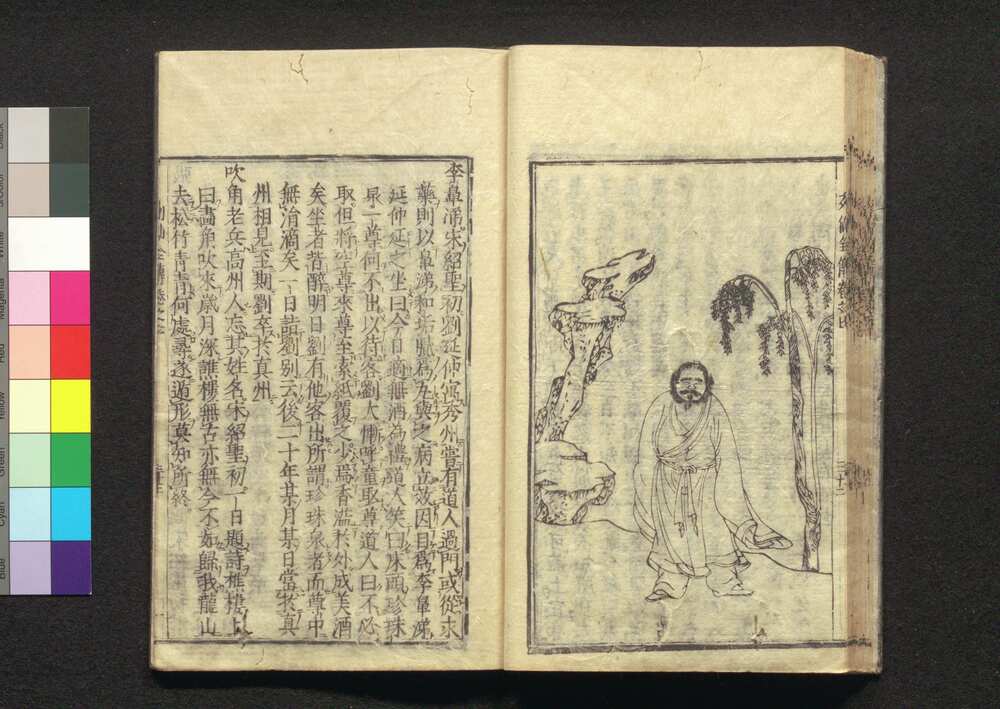 列仙全傳卷之七
三十二
李鼻涕宋紹聖初劉延仲寓秀州嘗有道人過門或從求
藥則以鼻涕和垢膩為丸與之病立效因目為李鼻涕
延仲延之坐曰今日適無酒為禮道人笑曰床頭珍珠
泉一尊何不出以待客劉大慚呼童取尊道人曰不必
取但將空尊來尊至索紙覆之少焉香溢於外成美酒
矣坐者皆醉明日劉有他客出所謂珍珠泉者而尊中
無涓滴矣一日詣劉別云後二十年某月某日當於真
州相見至期劉卒於真州
吹角老兵高州人忘其姓名宋紹聖初一日題詩樵樓上
曰畫角吹來歲月深譙樓無古亦無今不如歸我龍山
去松竹青青何處尋遂遁形莫知所終
Black
3/Color
White
Magenta
Red
Yellow
Green
Cyan
Blue